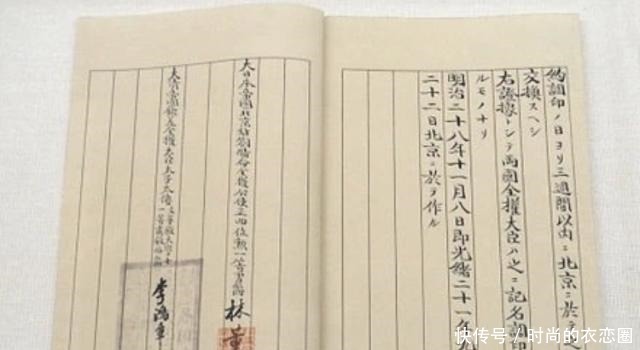 約調印ノ日ヨリ三週間以內ニ北京ニ於テ
交換スヘシ
右證據トシテ兩國全權大臣ハ之ニ記名調印
ルモノナリ
明治二十八年十一月八日即光緒二十一年
二十二日北京ニ於テ作ル
大日本帝國北京駐劄特命全權公使正四位勳一等男爵 林董
大清帝國欽差全權大臣太子太傅文華殿大學士一等肅毅伯 李鴻章
快传号/时尚的衣恋圈